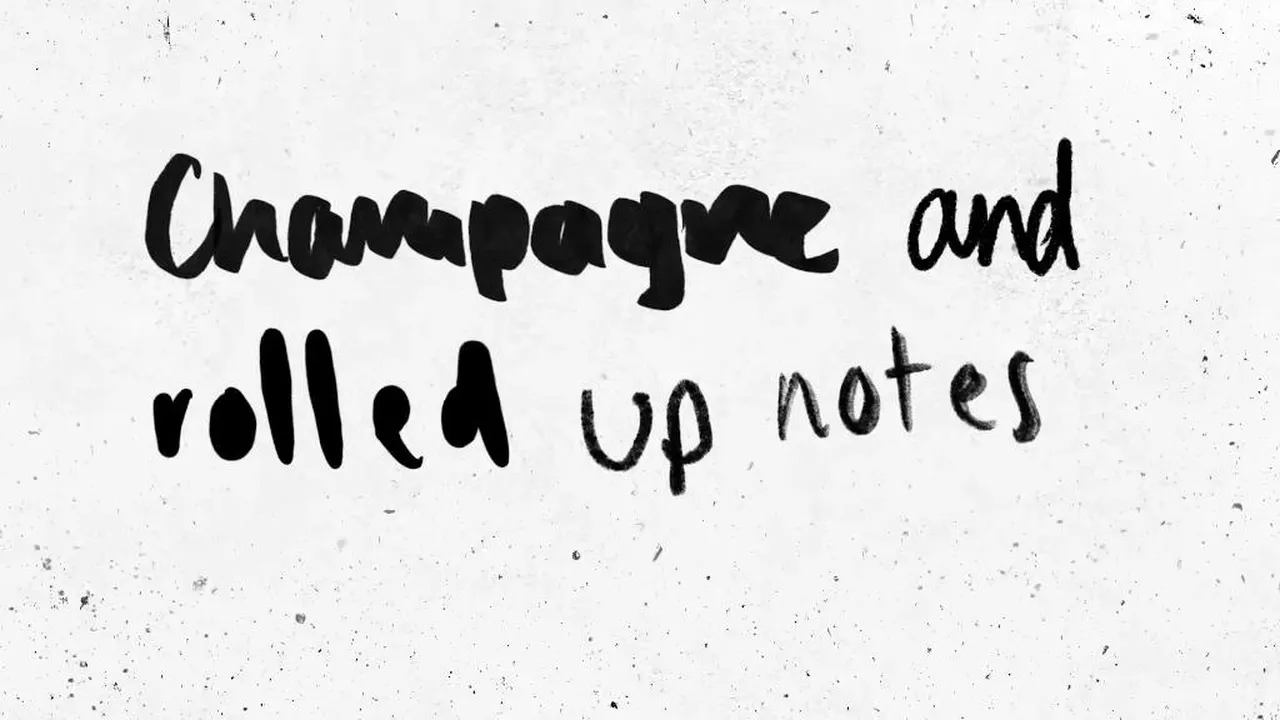 Champagne and
rolled up notes